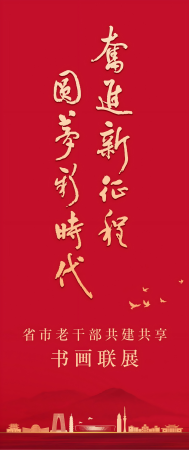 奮進新征程
圆夢新時代
省市老干部共建共享
书画联展